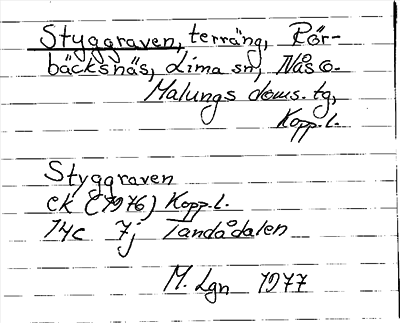 Styggraven, terräng, Rör-
bäcksnäs, Lima sn, Nås o.
Malungs doms. tg,
Kopp.l.
Styggraven
ek (1976) Kopp.l.
14c 7j Tandådalen
M. Lgn 1977